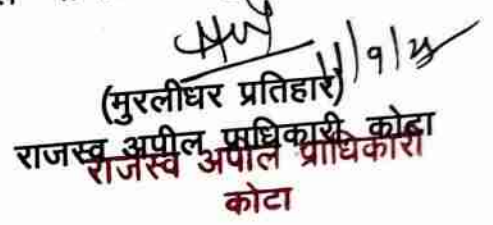 11/9/25
(मुरलीधर प्रतिहार)
राजस्व अपील प्राधिकारी, कोटा
राजस्व अपील प्राधिकारी
कोटा